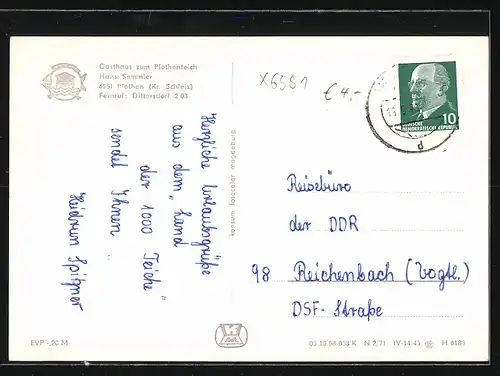 Gasthaus zum Plothenteich
Hans Semmler
6551 Plothen (Kr. Schleiz)
Fernruf: Dittersdorf 2 03
X6551
€ 4,-
10
DEUTSCHE
DEMOKRATISCHE REPUBLIK
d
Herzliche Urlaubsgrüße
aus dem "Land
der 1000 Teiche"
sendet Ihnen
Heidrun Spitzner
konsum fotocolor magdeburg
Reisebüro
der DDR
98 Reichenbach (Vogtl.)
DSF-Straße
EVP -,20 M
03 10 08 033 K N 2/71 IV-14-45 H 6183